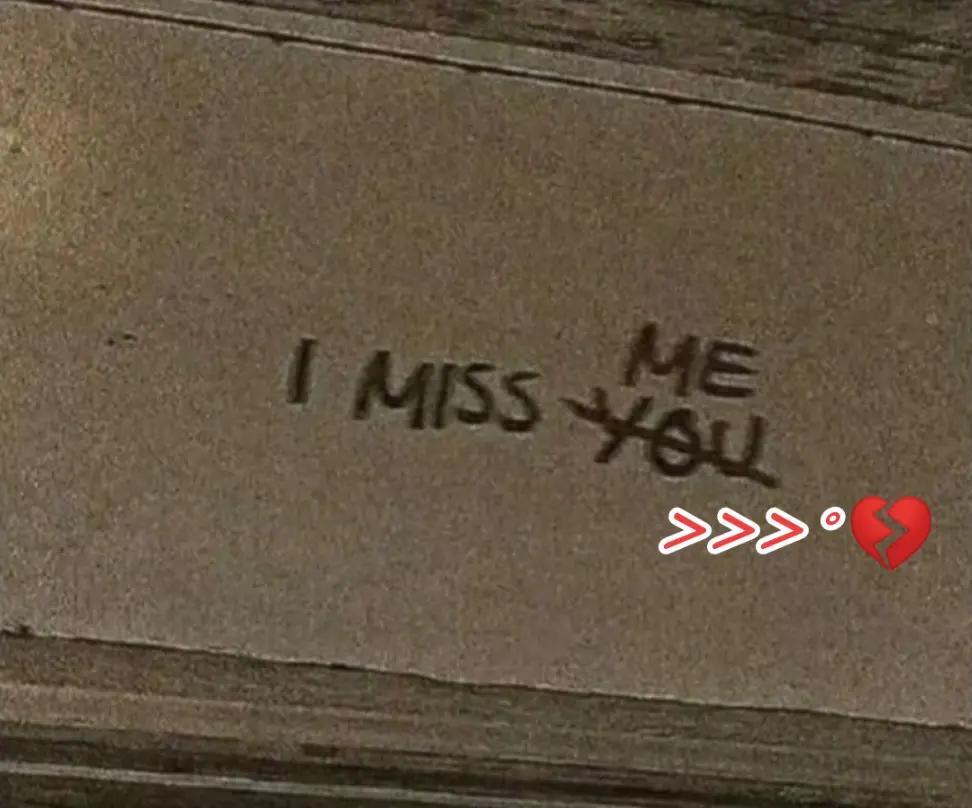 I MISS YOU
ME
>>>°💔